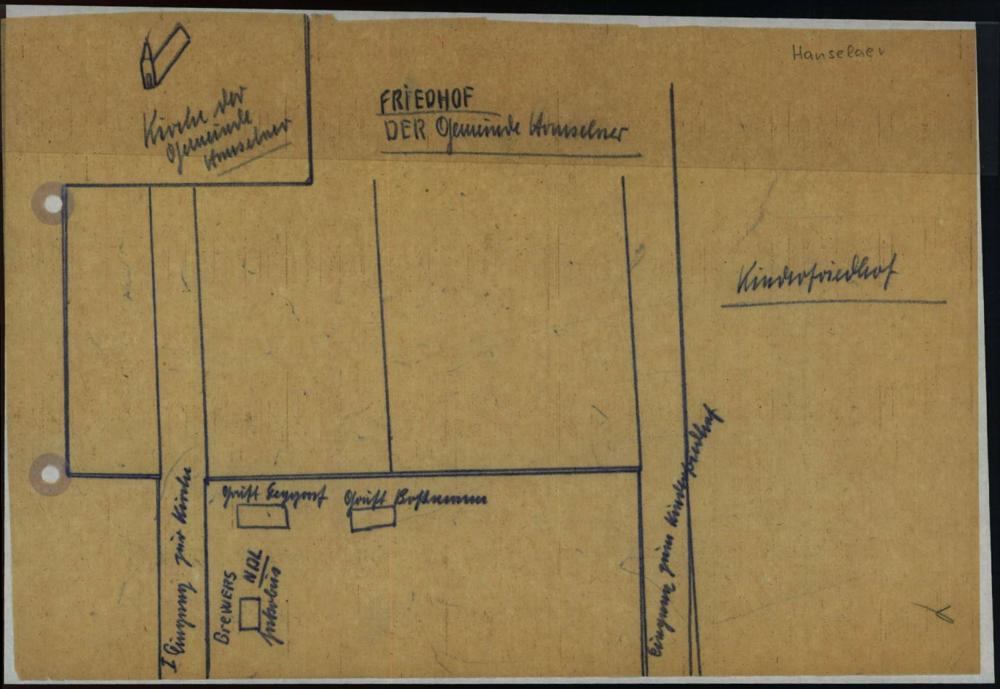 Hanselaer
Kirche der
Gemeinde
Hanselaer
FRIEDHOF
DER Gemeinde Hanselaer
Kinderfriedhof
Gruft
Gruft
I Eingang zur Kirche
BREWERS
NDL
Jakobus
Eingang zum Kinderfriedhof